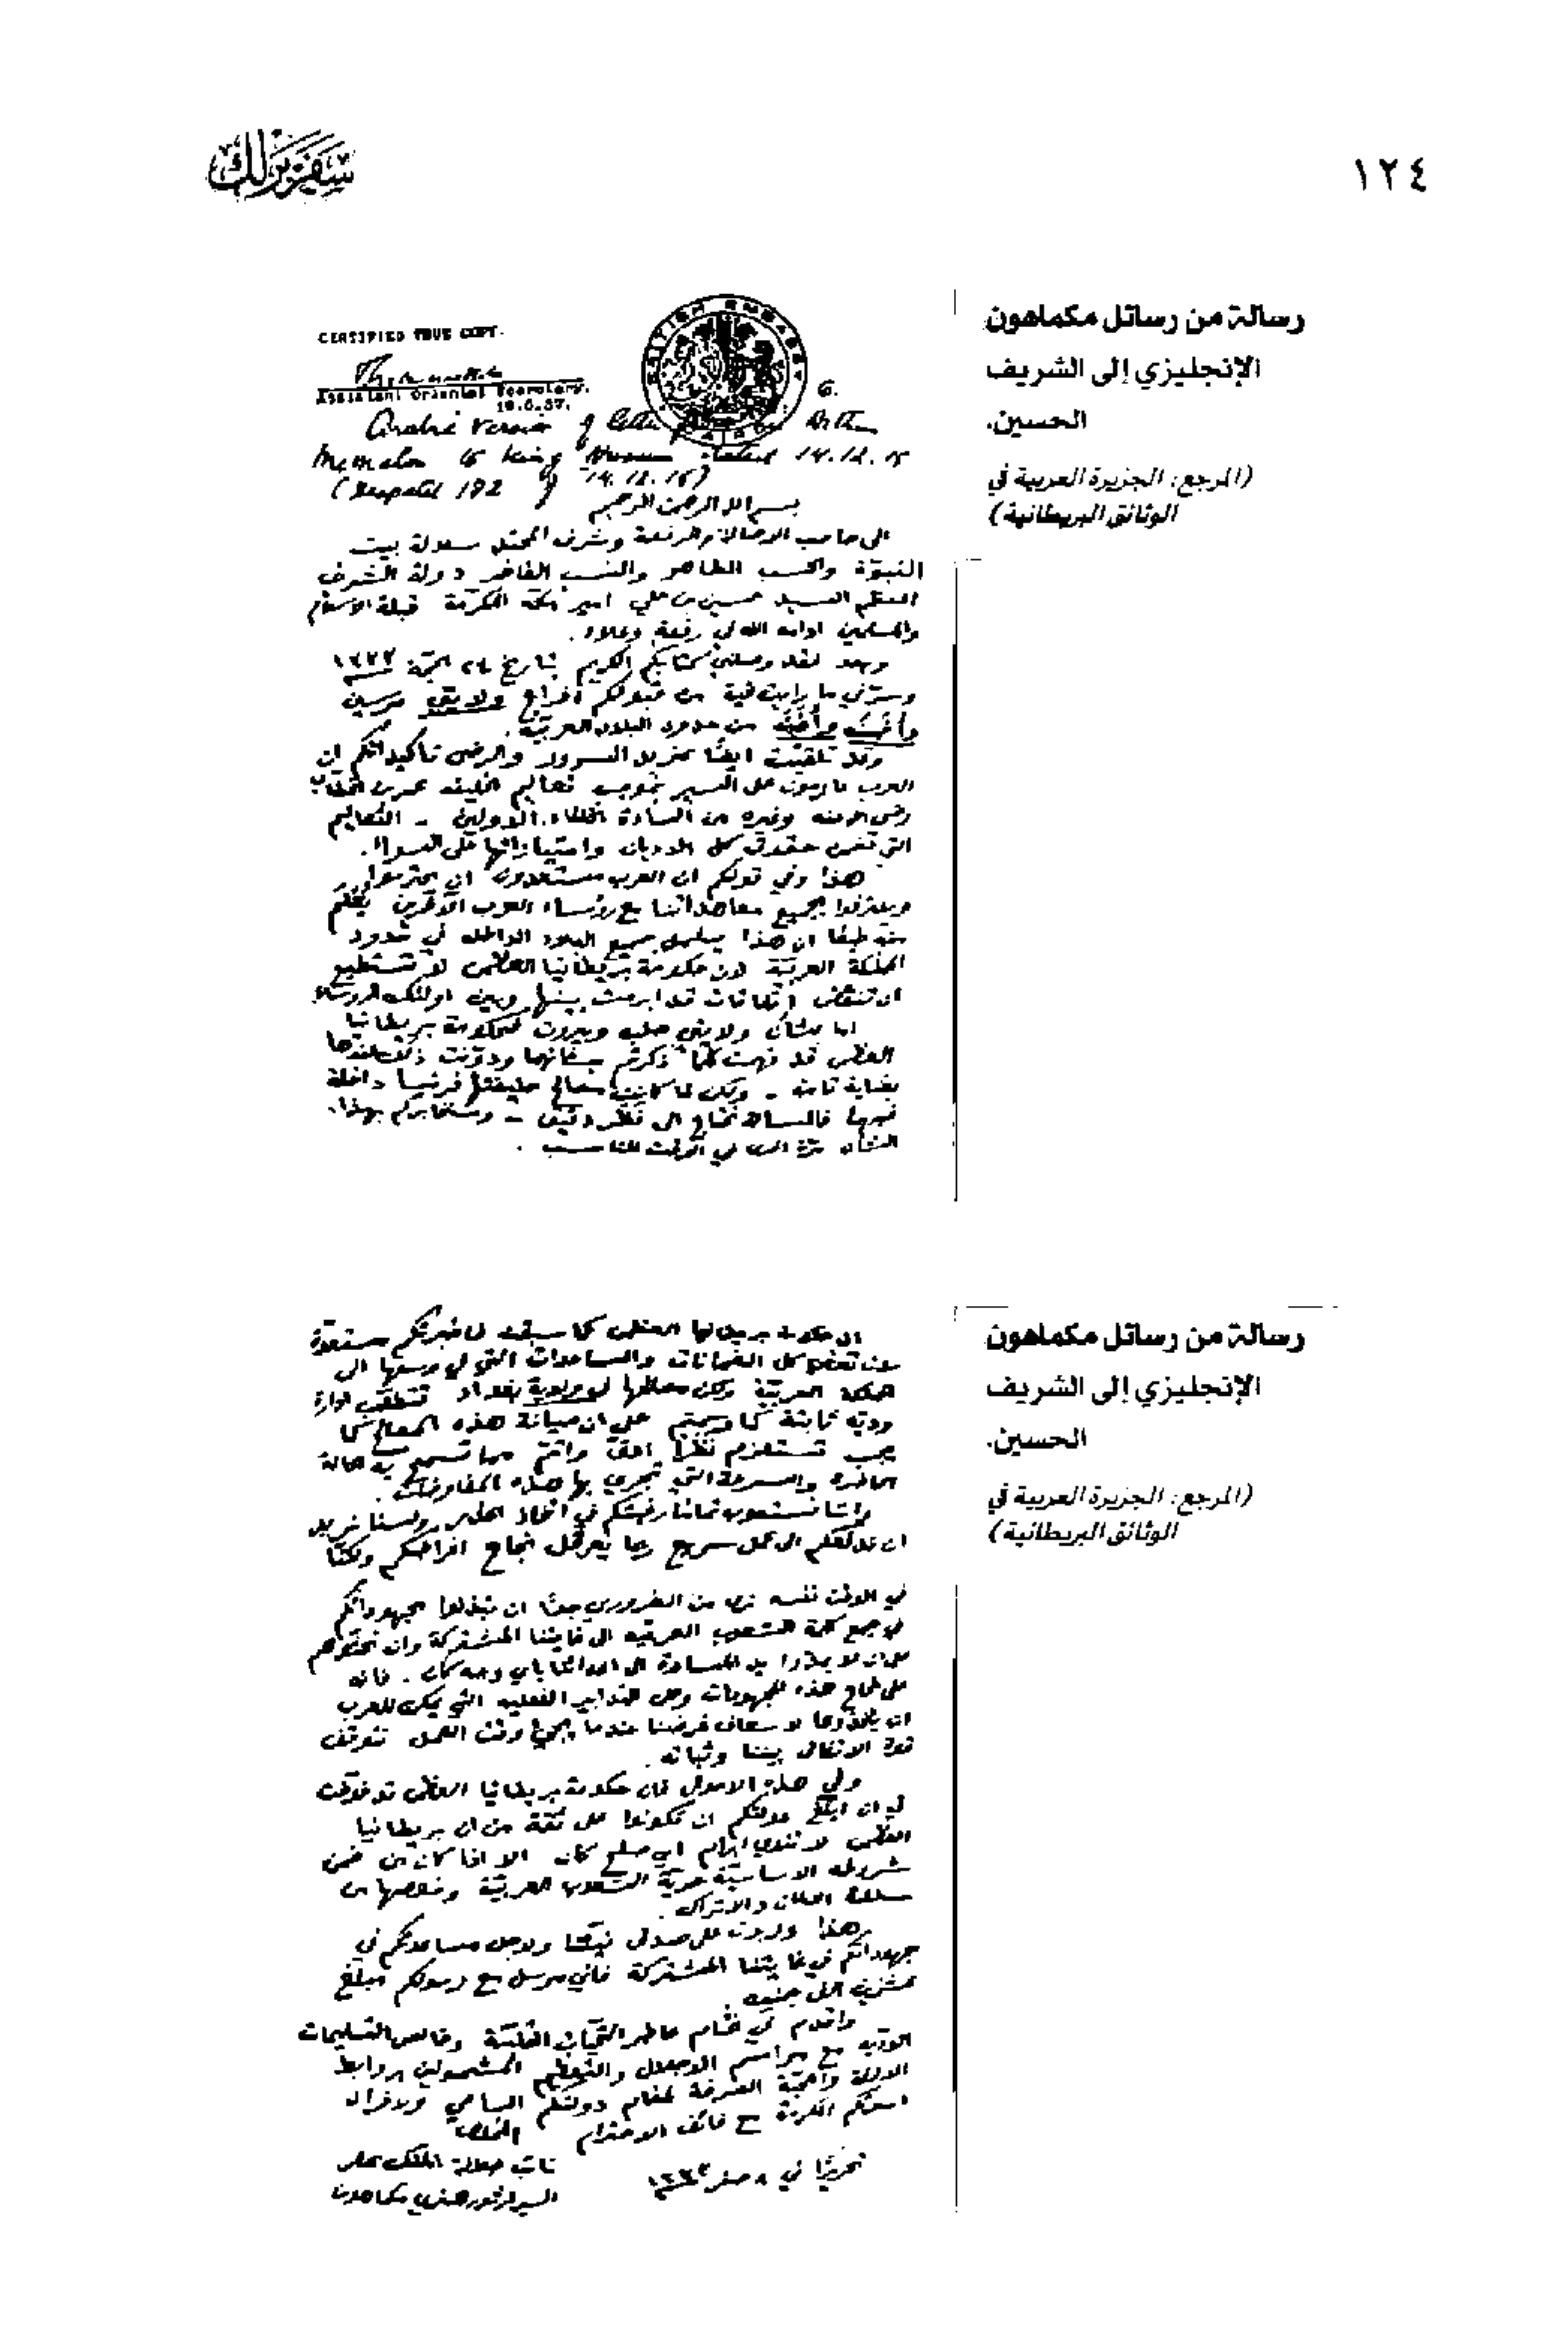 ١٢٤
سفر برلك
رسالة من رسائل مكماهون
الإنجليزي إلى الشريف
الحسين.
(المرجع: الجزيرة العربية في
الوثائق البريطانية)
CERTIFIED TRUE COPY.
Assistant Oriental Secretary.
Arabic Version of letter
McMahon to King Husein dated 14.12.15
(Despatch 192 of 14.12.15)
بسم الله الرحمن الرحيم
الى صاحب الاصالة والرفعة وشرف المحتد سلالة بيت
النبوة والحسب الطاهر والنسب الفاخر دولة الشريف
المعظم السيد حسين بن علي امير مكة المكرمة قبلة الاسلام
والمسلمين ادامه الله في رفعة وعلاء.
وبعد فقد وصلني كتابكم الكريم بتاريخ ٢٤ الحجة ١٣٣٣
وسرني ما رأيت فيه من قبولكم اخراج ولايتي مرسين
وأضنه من حدود البلاد العربية.
وقد تلقيت ايضا بمزيد السرور والرضى تأكيداتكم ان
العرب عازمون على السير بموجب تعاليم الخليفه عمر بن الخطاب
رضي الله عنه وغيره من السادة الخلفاء الاولين - التعاليم
التي تضمن حقوق كل الاديان وامتيازاتها على السواء.
هذا وفي قولكم ان العرب مستعدون ان يحترموا
ويعترفوا بجميع معاهداتنا مع رؤساء العرب الآخرين يعلم
منه طبعا ان هذا يشمل جميع البلاد الداخلة في حدود
المملكة العربية لان حكومة بريطانيا العظمى لا تستطيع
ان تنقض اتفاقات قد ابرمت بينها وبين اولئك الرؤساء
اما بشأن ولايتي حلب وبيروت فحكومة بريطانيا
العظمى قد فهمت كلما ذكرتم بشأنهما ودونت ذلك عندها
بعناية تامة - ولكن لما كانت مصالح حليفتها فرنسا داخلة
فيهما فالمسألة تحتاج الى نظر دقيق - وسنخابركم بهذا
الشأن مرة اخرى في الوقت المناسب.
رسالة من رسائل مكماهون
الإنجليزي إلى الشريف
الحسين.
(المرجع: الجزيرة العربية في
الوثائق البريطانية)
ان حكومة بريطانيا العظمى كما سبقت فأخبرتكم مستعدة
لأن تعطي كل الضمانات والمساعدات التي في وسعها الى
المملكة العربية ولكن مصالحها في ولاية بغداد تتطلب ادارة
ودية ثابتة كما رسمتم على ان صيانة هذه المصالح كما
يجب تستلزم نظرا ادق واتم مما تسمح به الحالة
الحاضرة والسرعة التي تجري بها هذه المفاوضات.
واننا نستصوب تماما رغبتكم في اتخاذ الحذر ولسنا نريد
ان ندفعكم الى عمل سريع ربما يعرقل نجاح اغراضكم ولكنا
في الوقت نفسه نرى من الضروري جدا ان تبذلوا مجهوداتكم
في جمع كلمة الشعوب العربيه الى غايتنا المشتركة وان تحثوهم
على ان لا يمدوا يد المساعدة الى اعدائنا بأي وجه كان. فانه
على نجاح هذه المجهودات وعلى التدابير الفعليه التي يمكن للعرب
ان يتخذوها لاسعاف غرضنا عندما يجيء وقت العمل تتوقف
قوة الاتفاق بيننا وثباته.
وفي هذه الاحوال فان حكومة بريطانيا العظمى قد فوضت
لي ان ابلغ دولتكم ان تكونوا على ثقة من ان بريطانيا
العظمى لا تنوي ابرام اي صلح كان الا اذا كان من ضمن
شروطه الاساسية حرية الشعوب العربية وخلاصها من
سلطة الالمان والاتراك.
هذا وعربون على صدق نيتنا ولاجل مساعدتكم في
مجهوداتكم في غايتنا المشتركة فاني مرسل مع رسولكم مبلغ
عشرين الف جنيه.
واقدم في الختام عاطر التحيات القلبية وخالص التسليمات
الودية مع مراسم الاجلال والتعظيم المشمولين بروابط
الالفة والمحبة الصرفة لمقام دولتكم السامي ولافراد
اسرتكم المكرمة مع فائق الاحترام المخلص
تحريرا في ٨ صفر ١٣٣٤
نائب جلالة الملك بمصر
السير ارثور هنري مكماهون